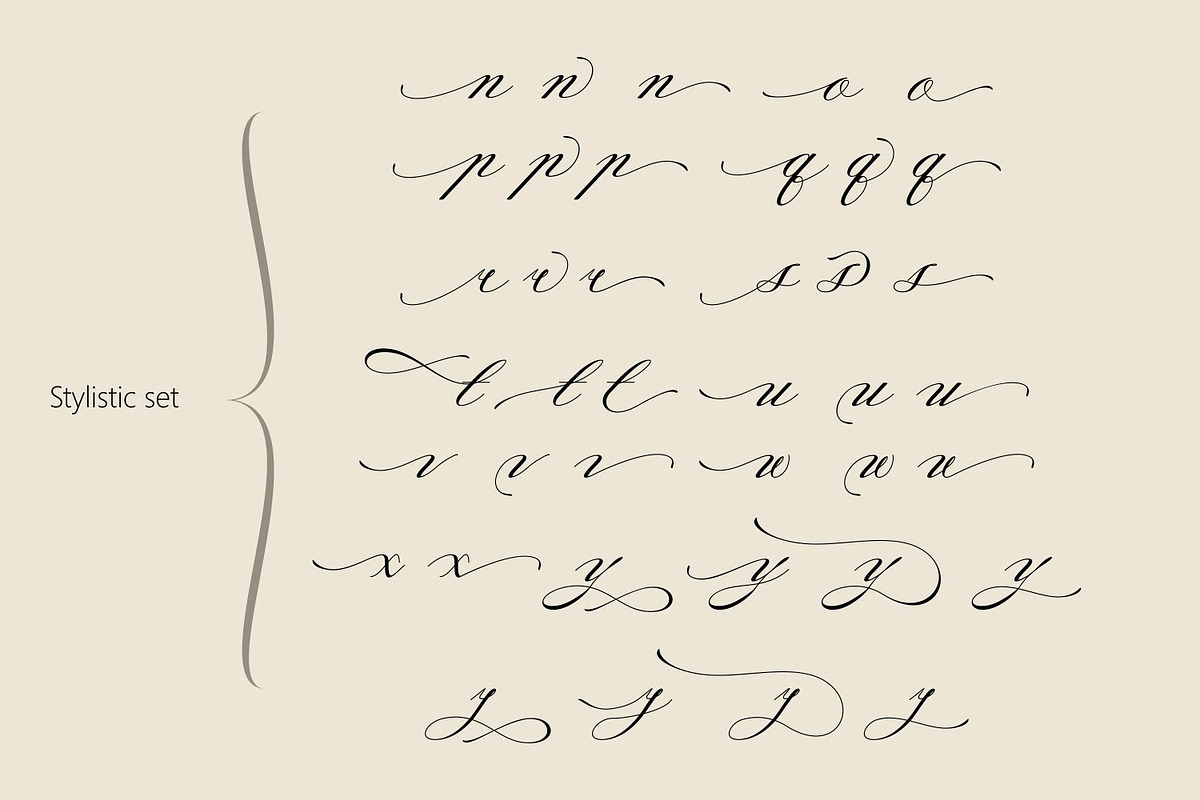 Stylistic set
n n n o o
p p p q q q
r r r s s s
t t t u u u
v v v w w w
x x y y y y
z z z z